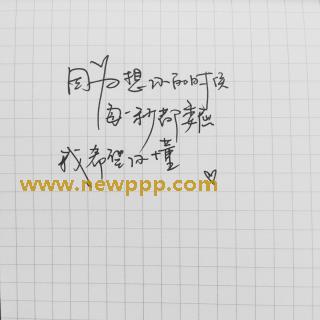 因为想你的时候
每一秒都委屈
我希望你懂
www.newppp.com